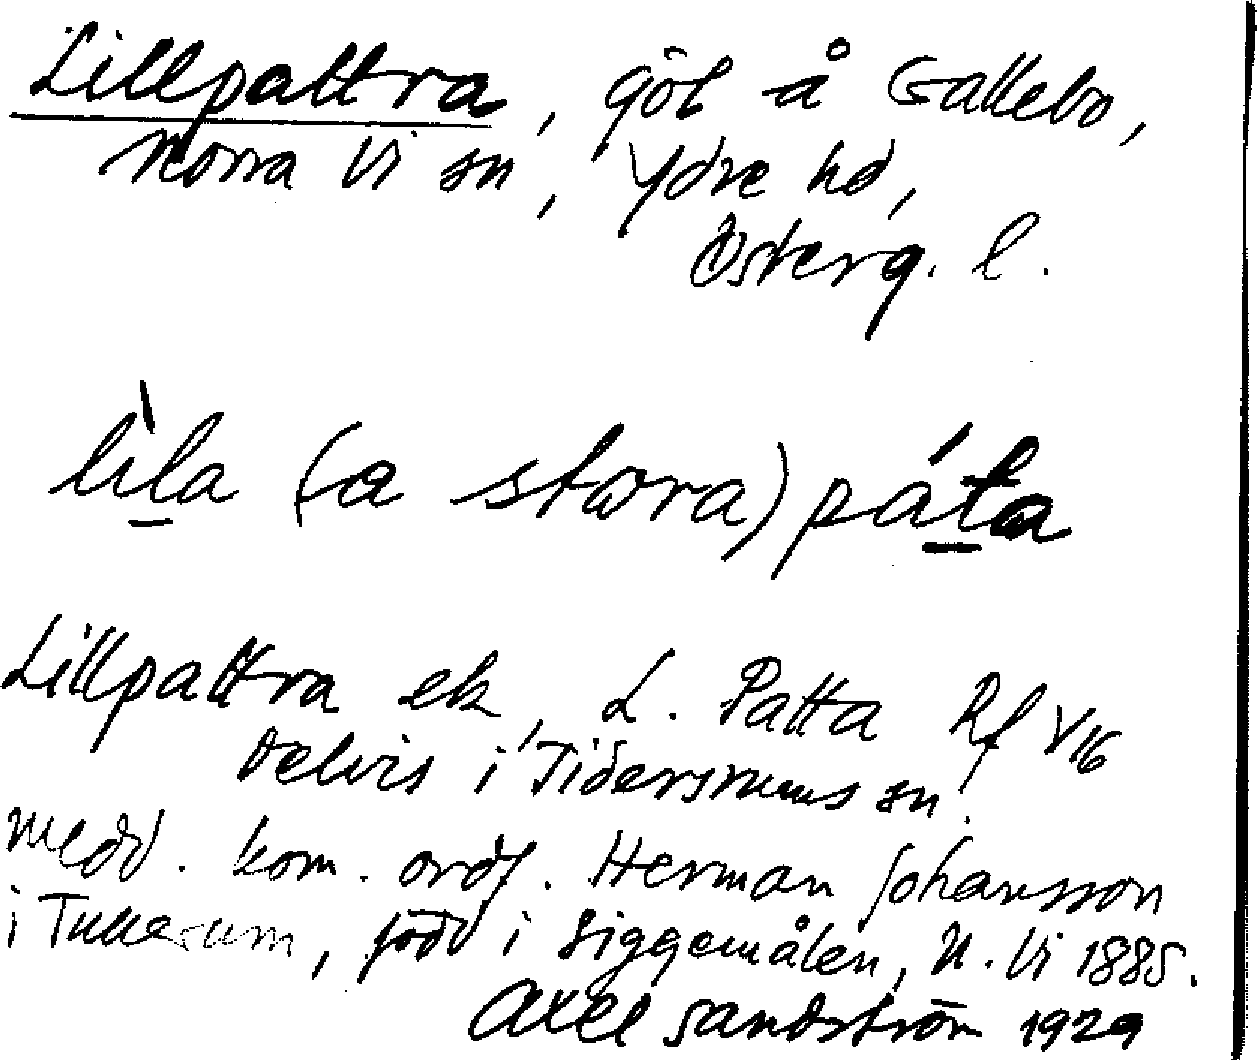 Lillpattra, göl å Gallebo,
Norra Vi sn, Ydre hd,
Österg. l.
lìla (a stora) páta
Lillpattra ek, L. Patta Rf V16
Delvis i Tidersrums sn.
Medd. kom. ordf. Herman Johansson
i Tullerum, född i Siggemålen, N. Vi 1885.
Axel Sandström 1929